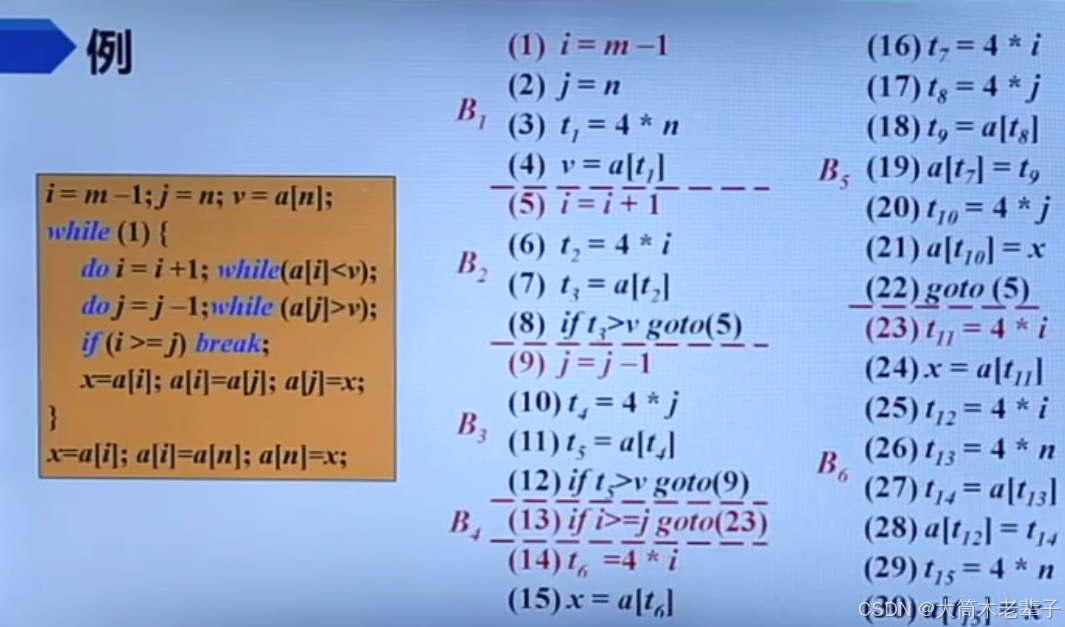 例
i = m –1; j = n; v = a[n];
while (1) {
do i = i +1; while(a[i]<v);
do j = j –1;while (a[j]>v);
if (i >= j) break;
x=a[i]; a[i]=a[j]; a[j]=x;
}
x=a[i]; a[i]=a[n]; a[n]=x;
B₁
(1) i = m –1
(2) j = n
(3) t₁ = 4 * n
(4) v = a[t₁]
B₂
(5) i = i + 1
(6) t₂ = 4 * i
(7) t₃ = a[t₂]
(8) if t₃>v goto(5)
B₃
(9) j = j –1
(10) t₄ = 4 * j
(11) t₅ = a[t₄]
(12) if t₅>v goto(9)
B₄ (13) if i>=j goto(23)
(14) t₆ =4 * i
(15) x = a[t₆]
B₅
(16) t₇ = 4 * i
(17) t₈ = 4 * j
(18) t₉ = a[t₈]
(19) a[t₇] = t₉
(20) t₁₀ = 4 * j
(21) a[t₁₀] = x
(22) goto (5)
B₆
(23) t₁₁ = 4 * i
(24) x = a[t₁₁]
(25) t₁₂ = 4 * i
(26) t₁₃ = 4 * n
(27) t₁₄ = a[t₁₃]
(28) a[t₁₂] = t₁₄
(29) t₁₅ = 4 * n
(30) a[t₁₅] = x
CSDN @大筒木老辈子